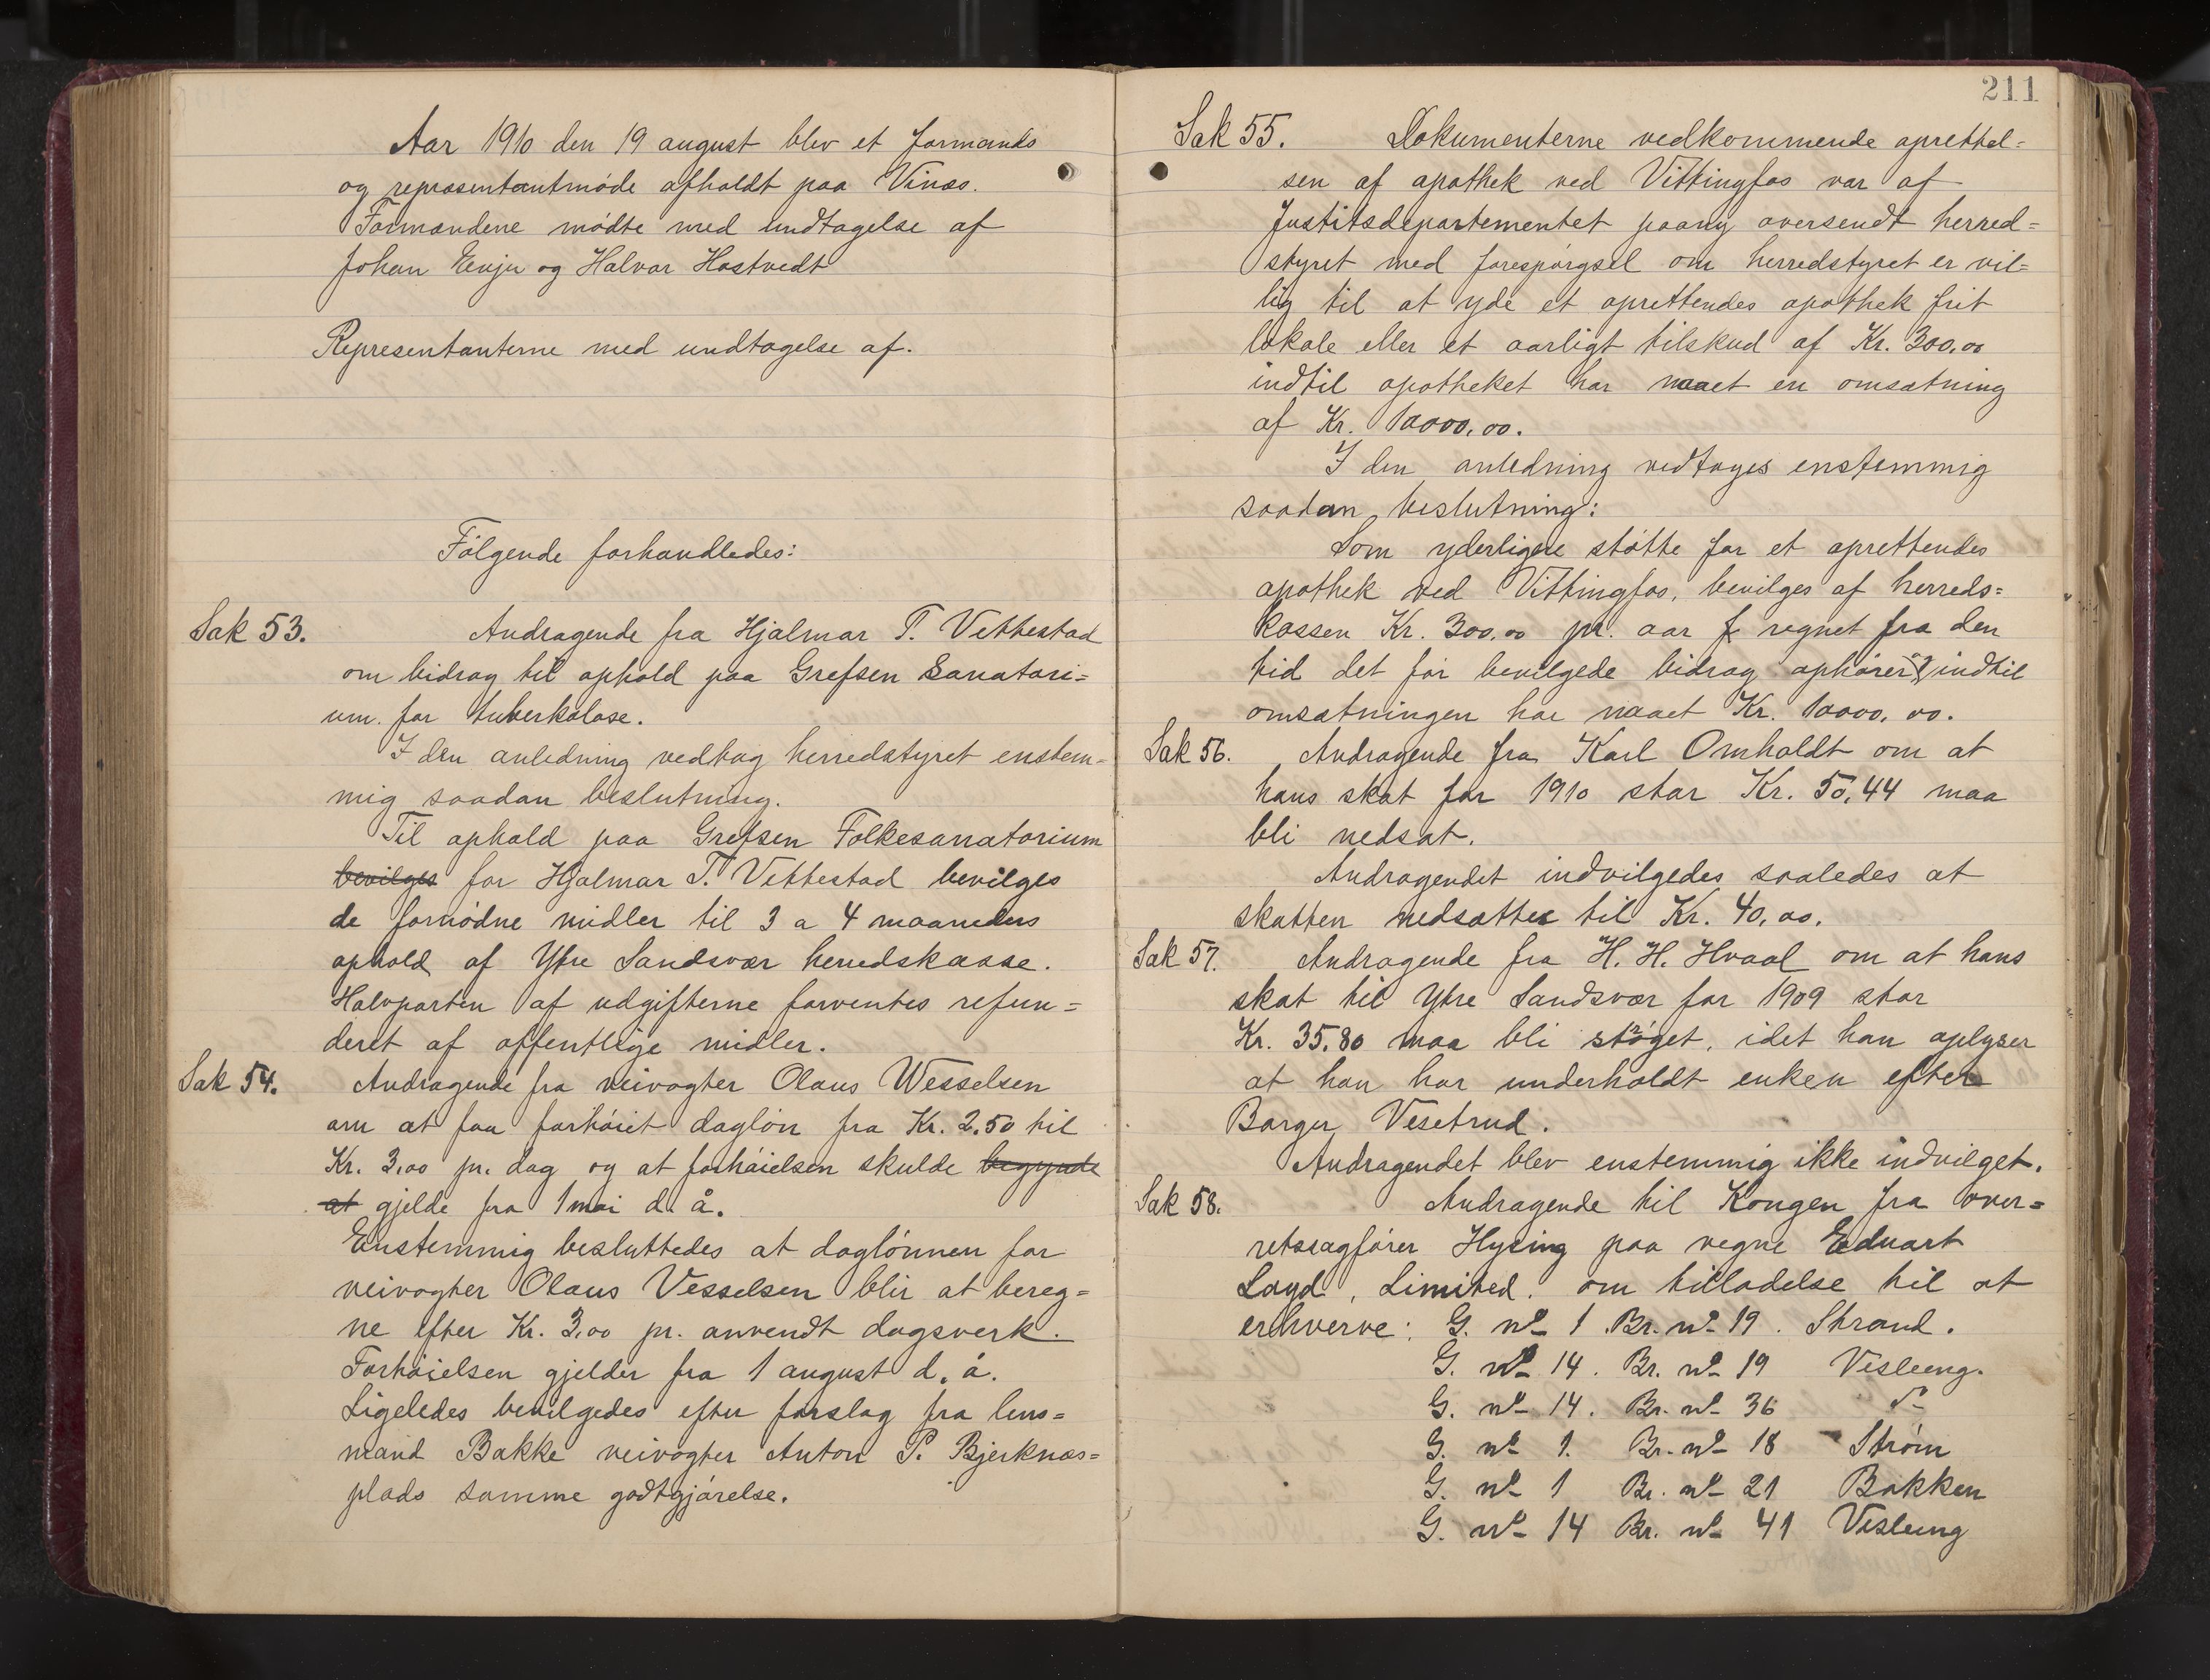 Aar 1910 den 19 august blev et formands
og repræsentantmøde afholdt paa Vinæs.
Formændene mødte med undtagelse af
Johan Evju og Halvor Hostvedt
Representanterne med undtagelse af.
Følgende forhandledes:
Sak 53. Andragende fra Hjalmar T. Vettestad
om bidrag til ophold paa Grefsen Sanatori=
um. for tuberkolose.
I den anledning vedtog herredstyret enstem-
mig saadan beslutning.
Til ophold paa Grefsen Folkesanatorium
bevilges for Hjalmar T. Vettestad bevilges
de fornødne midler til 3 a 4 maaneders
ophold af Ytre Sandsvær herredskasse.
Halvparten af udgifterne forventes refun=
deret af offentlige midler.
Sak 54. Andragende fra veivogter Olaus Wesselsen
om at faa forhøiet dagløn fra Kr. 2.50 til
Kr. 3,00 pr. dag og at forhøielsen skulde begynde
at gjelde fra 1 mai d. å.
Enstemmig besluttedes at daglønnen for
veivogter Olaus Vesselsen blir at bereg=
ne efter Kr. 3,00 pr. anvendt dagsverk.
Forhøielsen gjelder fra 1 august d. å.
Ligeledes bevilgedes efter forslag fra lens=
mand Bakke veivogter Anton P. Bjerknæs=
plads samme godtgjørelse.
211
Sak 55. Dokumenterne vedkommende oprettel=
sen af apothek ved Vittingfos var af
Justitsdepartementet paany oversendt herred=
styret med forespørgsel om herredstyret er vil=
lig til at yde et oprettendes apothek frit
lokale eller et aarligt tilskud af Kr. 300,00
indtil apotheket har naaet en omsætning
af Kr. 10000,00.
I den anledning vedtoges enstemmig
saadan beslutning:
Som yderligere støtte for et oprettendes
apothek ved Vittingfos, bevilges af herreds=
kassen Kr. 300,00 pr. aar f regnet fra den
tid det før bevilgede bidrag ophører og indtil
omsætningen har naaet Kr. 10000,00.
Sak 56. Andragende fra Karl Omholdt om at
hans skat for 1910 stor Kr. 50,44 maa
bli nedsat.
Andragendet indvilgedes saaledes at
skatten nedsættes til Kr. 40,00.
Sak 57. Andragende fra H. H. Hvaal om at hans
skat til Ytre Sandsvær for 1909 stor
Kr. 35,80 maa bli strøget, idet han oplyser
at han har underholdt enken efter
Borger Vesetrud.
Andragendet blev enstemmig ikke indvilget.
Sak 58. Andragende til Kongen fra over=
retssagfører Hysing paa vegne Eduart
Loyd, Limited. om tilladelse til at
erhverve: G. no 1 Br. no 19. Strand.
G. no 14. Br. no 19 Visleeng.
G. no 14. Br. no 36 do
G. no 1. Br. no 18 Strøm
G. no 1 Br. no 21 Bakken
G. no 14 Br. no 41 Visleeng